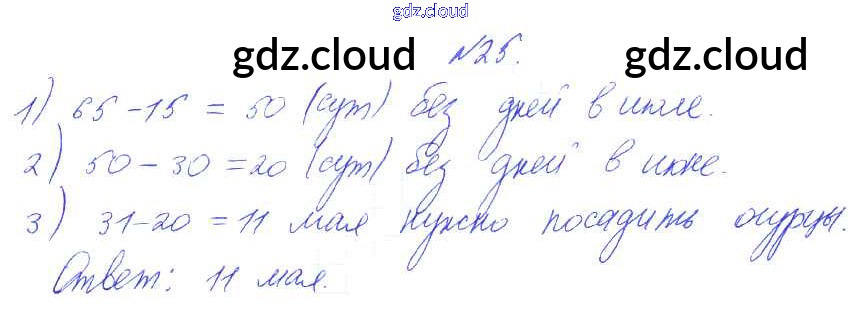 gdz.cloud
gdz.cloud №25. gdz.cloud
1) 65-15 = 50 (сут) без дней в июле.
2) 50-30=20 (сут) без дней в июне.
3) 31-20 = 11 мая нужно посадить огурцы.
Ответ: 11 мая.